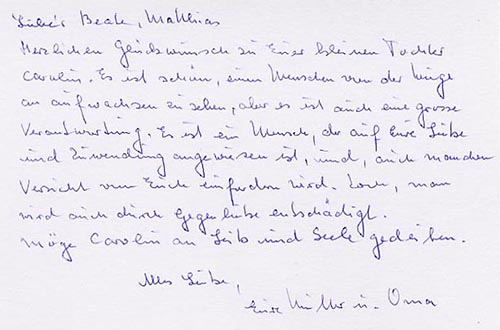 Liebe Beate, Matthias
Herzlichen Glückwunsch zu Eurer kleinen Tochter
Carolin. Es ist schön, einen Menschen von der Wiege
an aufwachsen zu sehen, aber es ist auch eine grosse
Verantwortung. Es ist ein Mensch, der auf Eure Liebe
und Zuwendung angewiesen ist, und, auch manchen
Verzicht von Euch einfordern wird. Doch, man
wird auch durch Gegenliebe entschädigt.
Möge Carolin an Leib und Seele gedeihen.
Alles Liebe,
Eure Mutter u. Oma